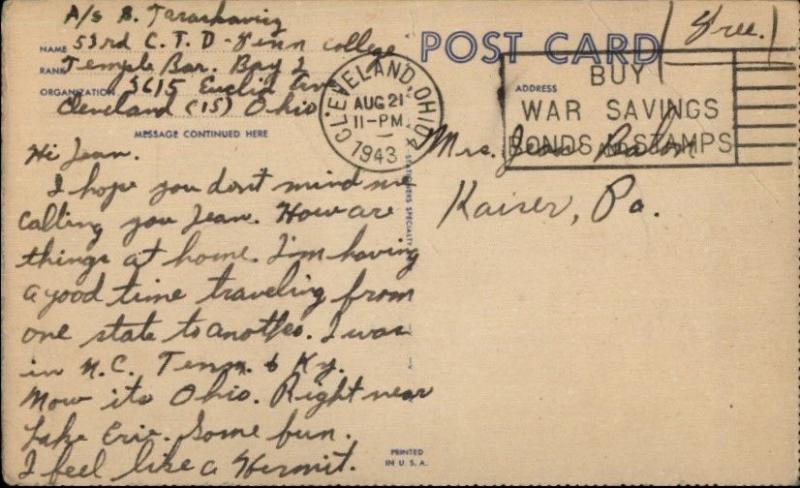 A/S B. Taraskavig
NAME 53rd C. T. D - Fenn college
RANK Temple Bar. Bay 2
ORGANIZATION 5615 Euclid Ave
Cleveland (15) Ohio
MESSAGE CONTINUED HERE
Hi Jean.
I hope you don't mind me
calling you Jean. How are
things at home. I'm having
a good time traveling from
one state to another. I was
in N.C. Tenn. & Ky.
Now its Ohio. Right near
Lake Erie. Some fun.
I feel like a Hermit.
POST CARD
Free.
CLEVELAND, OHIO
AUG 21
11-PM
1943
BUY
WAR SAVINGS
BONDS AND STAMPS
ADDRESS
Mrs. Jean
Kaiser, Pa.
PRINTED
IN U. S. A.